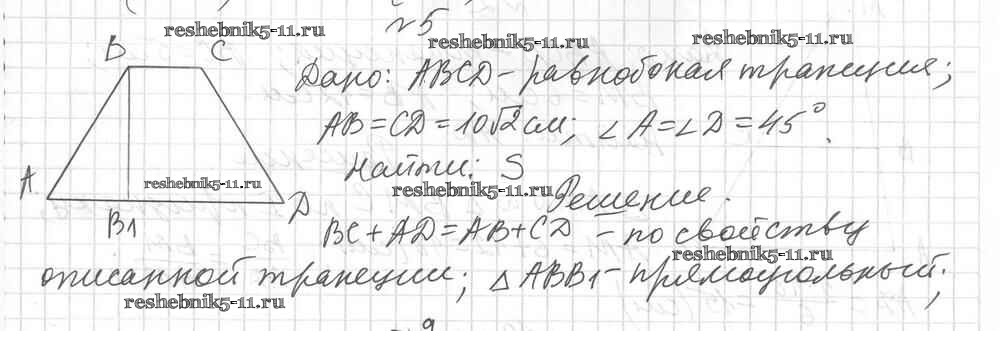 №5
reshebnik5-11.ru
reshebnik5-11.ru
reshebnik5-11.ru
B C
Дано: ABCD – равнобокая трапеция;
AB = CD = 10√2 см; ∠A = ∠D = 45°.
Найти: S
reshebnik5-11.ru
reshebnik5-11.ru
A D
B1
Решение.
BC + AD = AB + CD – по свойству
reshebnik5-11.ru
описанной трапеции; △ABB1 – прямоугольный;
reshebnik5-11.ru